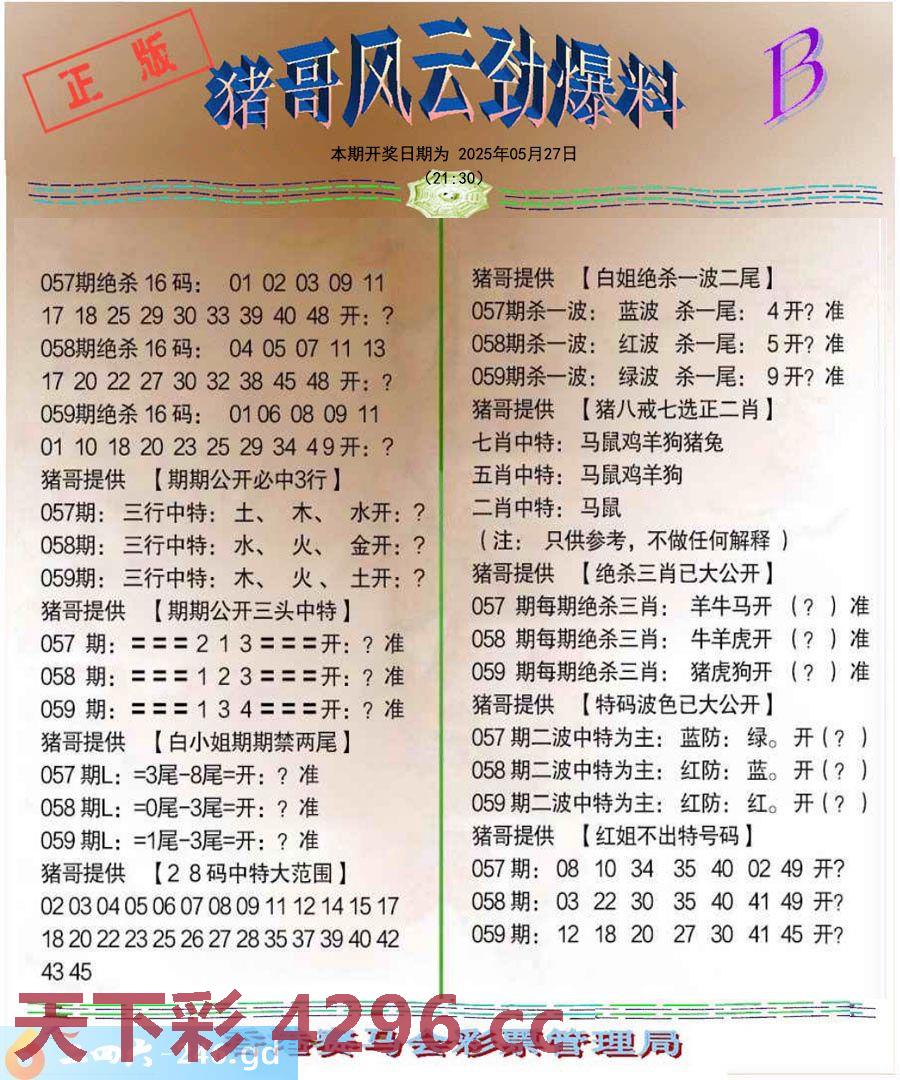 正版
猪哥风云劲爆料
B
本期开奖日期为 2025年05月27日
(21:30)
057期绝杀 16 码： 01 02 03 09 11
17 18 25 29 30 33 39 40 48 开：?
058期绝杀 16 码： 04 05 07 11 13
17 20 22 27 30 32 38 45 48 开：?
059期绝杀 16 码： 01 06 08 09 11
01 10 18 20 23 25 29 34 4 9 开：?
猪哥提供 【期期公开必中3行】
057期： 三行中特： 土、 木、 水开：?
058期： 三行中特： 水、 火、 金开：?
059期： 三行中特： 木、 火、 土开：?
猪哥提供 【期期公开三头中特】
057 期：===2 1 3===开：? 准
058 期：===1 2 3===开：? 准
059 期：===1 3 4===开：? 准
猪哥提供 【白小姐期期禁两尾】
057 期L：=3尾-8尾=开：? 准
058 期L：=0尾-3尾=开：? 准
059 期L：=1尾-3尾=开：? 准
猪哥提供 【2 8 码中特大范围】
02 03 04 05 06 07 08 09 11 12 14 15 17
18 20 22 23 25 26 27 28 35 37 39 40 42
43 45
猪哥提供 【白姐绝杀一波二尾】
057期杀一波： 蓝波 杀一尾： 4 开? 准
058期杀一波： 红波 杀一尾： 5 开? 准
059期杀一波： 绿波 杀一尾： 9 开? 准
猪哥提供 【猪八戒七选正二肖】
七肖中特： 马鼠鸡羊狗猪兔
五肖中特： 马鼠鸡羊狗
二肖中特： 马鼠
（注： 只供参考，不做任何解释 ）
猪哥提供 【绝杀三肖已大公开】
057 期每期绝杀三肖： 羊牛马开 （? ）准
058 期每期绝杀三肖： 牛羊虎开 （? ）准
059 期每期绝杀三肖： 猪虎狗开 （? ）准
猪哥提供 【特码波色已大公开】
057 期二波中特为主： 蓝防： 绿。 开（? ）
058 期二波中特为主： 红防： 蓝。 开（? ）
059 期二波中特为主： 红防： 红。 开（? ）
猪哥提供 【红姐不出特号码】
057 期： 08 10 34 35 40 02 49 开?
058 期： 03 22 30 35 40 41 49 开?
059 期： 12 18 20 27 30 41 45 开?
天下彩 4296.cc
马会彩票管理局